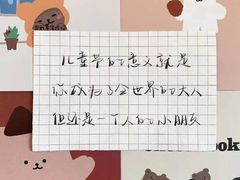 儿童节的意义就是
你成为了全世界的大人
但还是一个人的小朋友